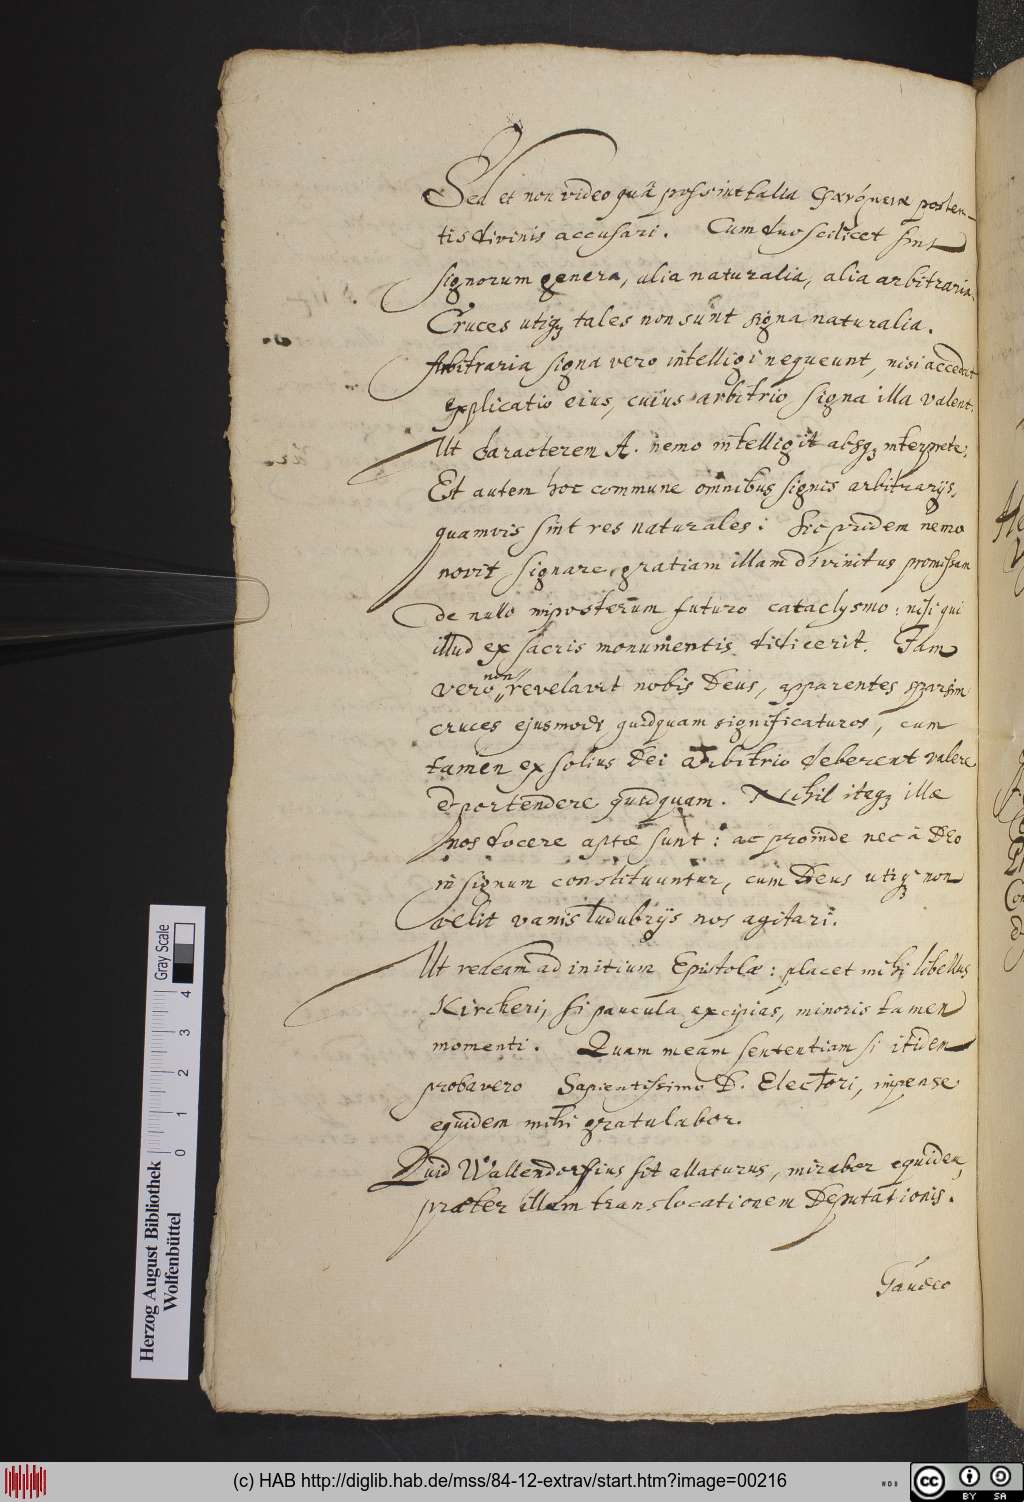 Sed et non video quā possint talia
tis divinis accusari. Cum duo scilicet sint
signorum genera, alia naturalia, alia arbitraria.
Cruces utiqꝫ tales non sunt signa naturalia.
Arbitraria signa vero intelligi nequeunt, nisi accedat
explicatio eius, cuius arbitrio signa illa valent.
Ut characterem A. nemo intelligit absqꝫ interprete;
Est autem hoc commune omnibus signis arbitrarijs,
quamvis sint res naturales: Sic pridem nemo
novit signare, gratiam illam divinitus promissam
de nullo inposterum futuro cataclysmo, nisi qui
illud ex sacris monumentis didicerit. Jam
vero non revelavit nobis Deus, apparentes sparsim
cruces ejusmodi quidquam significaturos, cum
tamen ex solius Dei arbitrio deberent valere
et portendere quidquam. Nihil itaqꝫ illæ
nos docere aptæ sunt: ac proinde nec à Deo
in signum constituuntur, cum Deus utiqꝫ non
velit vanis ludubrijs nos agitari.
Ut redeam ad initium Epistolæ: placet mihi libellus
Kircheri, si paucula excipias, minoris tamen
momenti. Quam meam sententiam si itidem
probavero Sapientissimo D. Electori, impense
equidem mihi gratulabor.
Quid Wallendorffius sit allaturus, mirabor equidem,
præter illam translocationem Deputationis.
Gaudeo
Gray Scale
0 1 2 3 4
Herzog August Bibliothek
Wolfenbüttel
(c) HAB http://diglib.hab.de/mss/84-12-extrav/start.htm?image=00216
WDB
cc BY SA